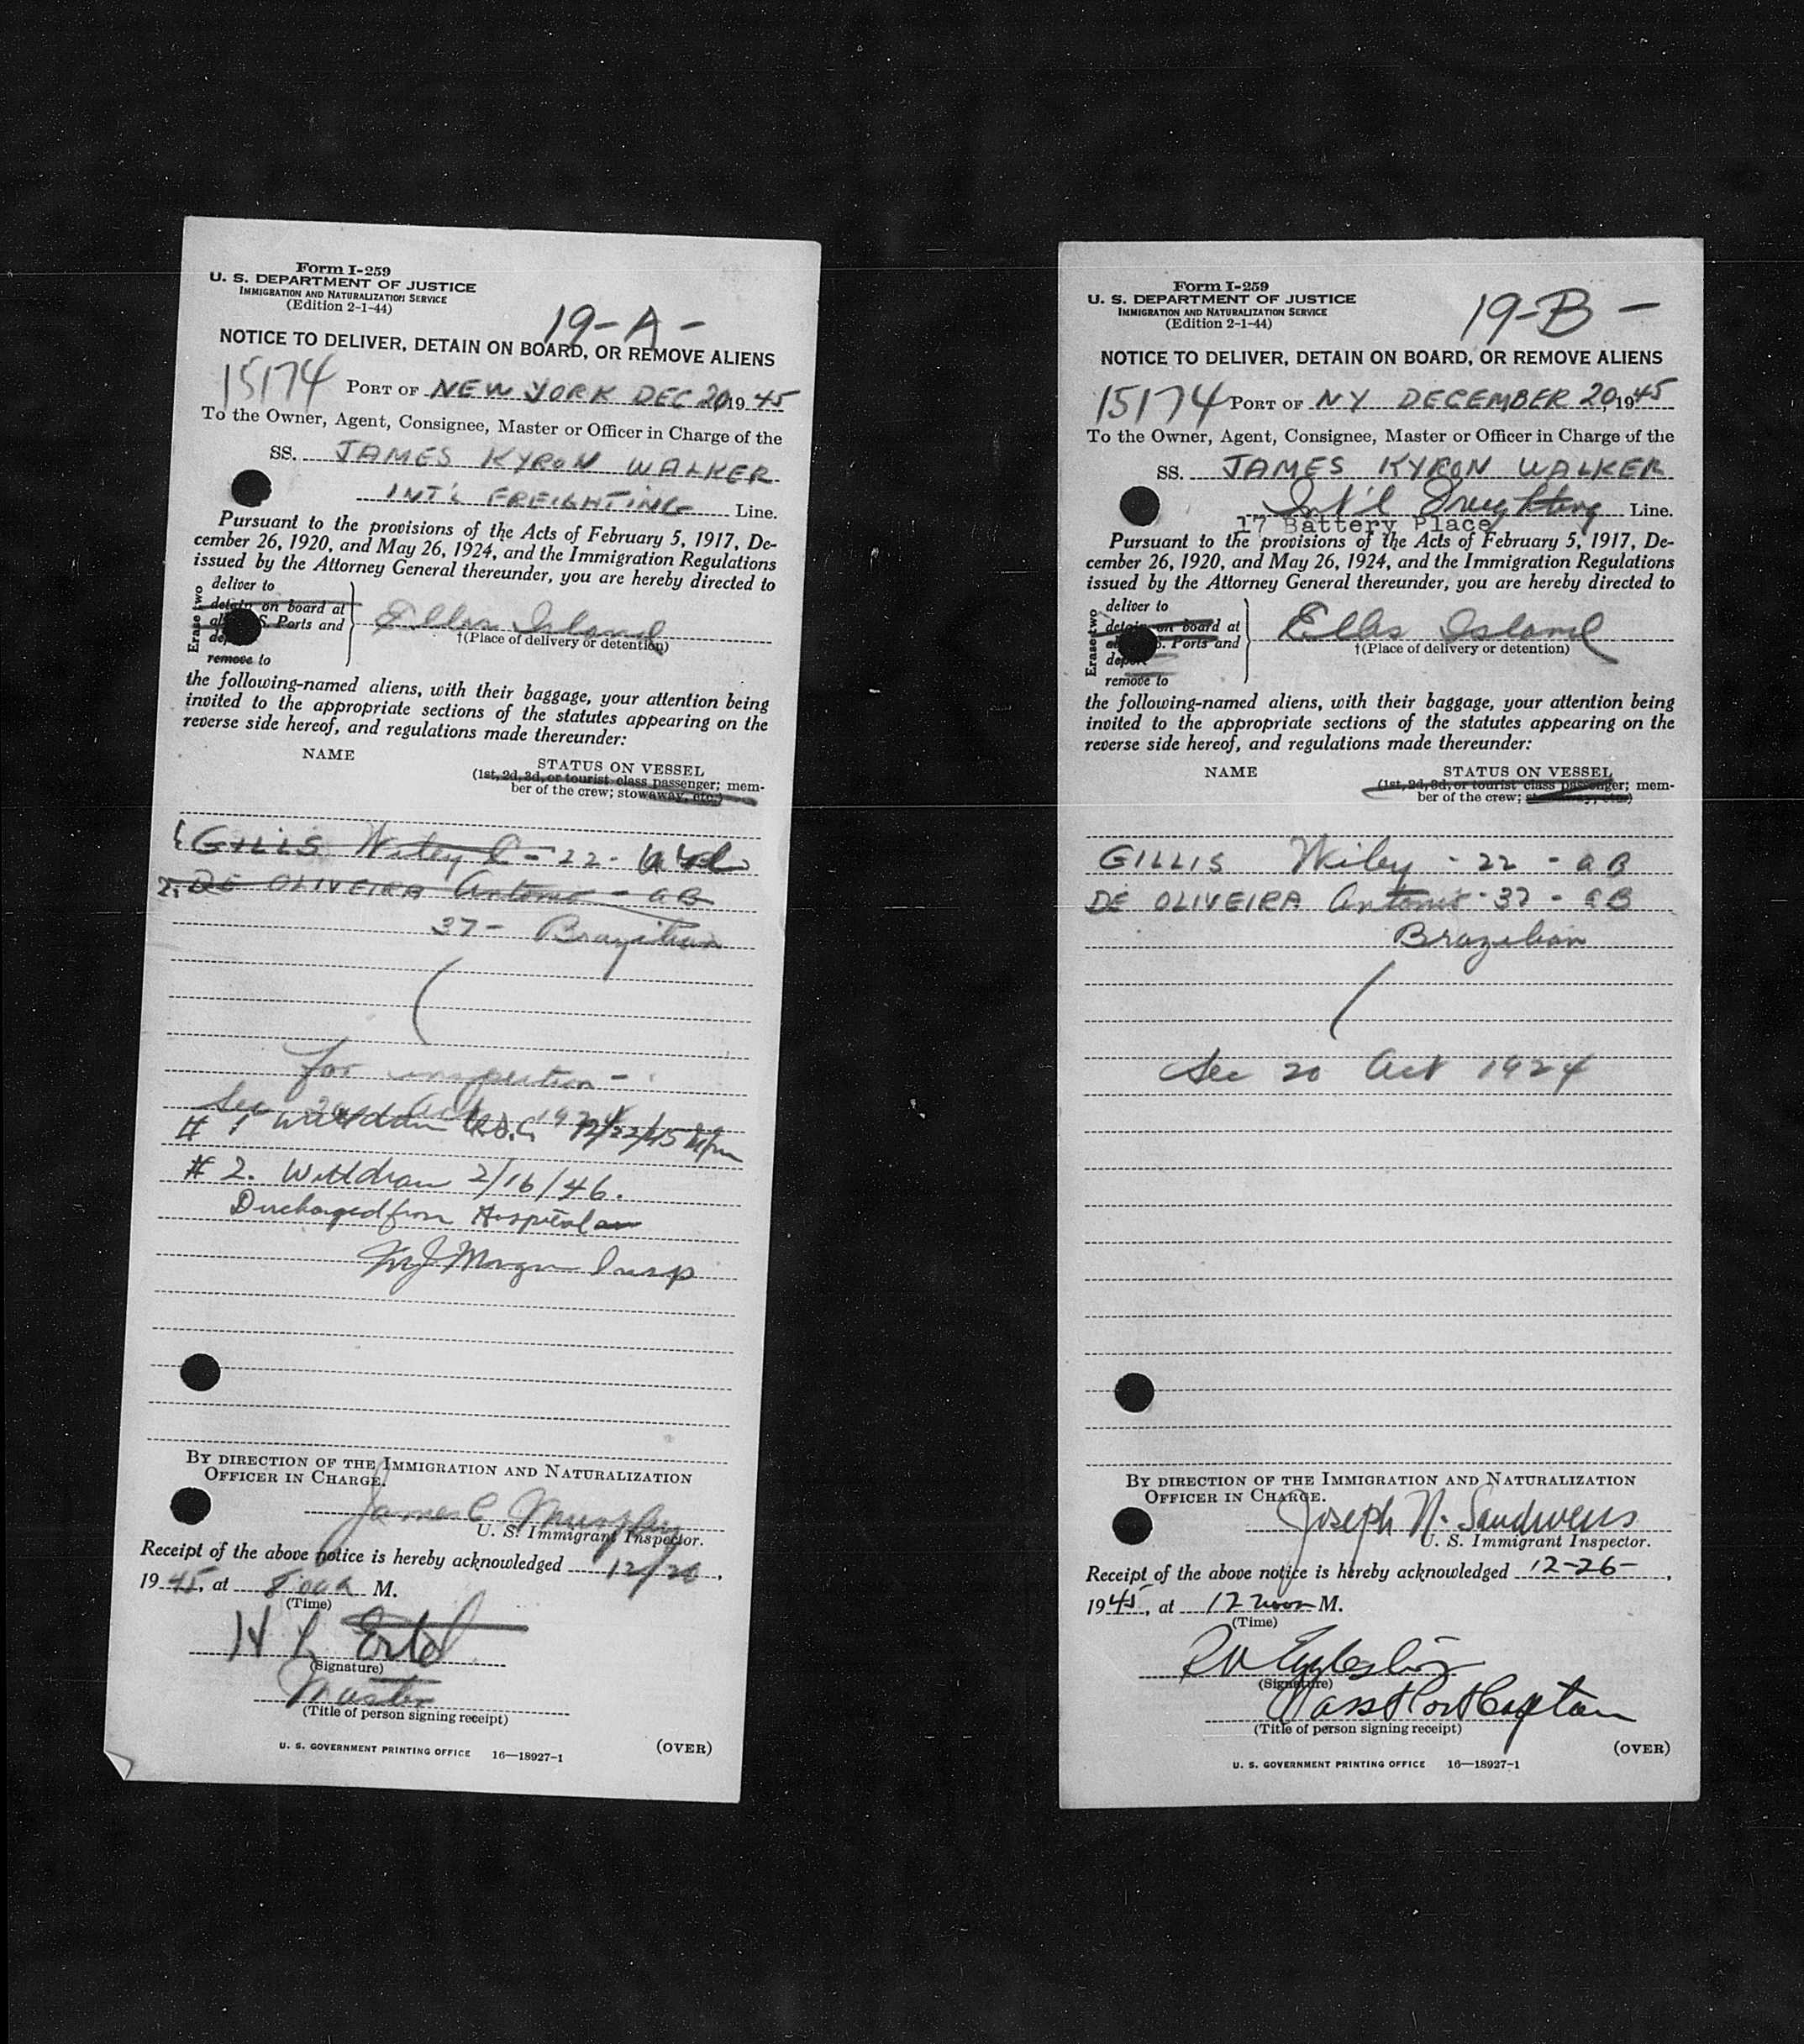 Form I-259
U. S. DEPARTMENT OF JUSTICE
IMMIGRATION AND NATURALIZATION SERVICE
(Edition 2-1-44)
19-A-
NOTICE TO DELIVER, DETAIN ON BOARD, OR REMOVE ALIENS
15174 PORT OF NEW YORK DEC 20, 1945
To the Owner, Agent, Consignee, Master or Officer in Charge of the
SS. JAMES KYRON WALKER
INT'L FREIGHTING Line.
Pursuant to the provisions of the Acts of February 5, 1917, De-
cember 26, 1920, and May 26, 1924, and the Immigration Regulations
issued by the Attorney General thereunder, you are hereby directed to
Erase two
deliver to
detain on board at
S. Ports and
remove to
Ellis Island
†(Place of delivery or detention)
the following-named aliens, with their baggage, your attention being
invited to the appropriate sections of the statutes appearing on the
reverse side hereof, and regulations made thereunder:
NAME STATUS ON VESSEL
(1st, 2d, 3d, or tourist class passenger; mem-
ber of the crew; stowaway, etc.)
GILLIS Wiley - 22 -
2. DE OLIVEIRA Antonio - aB
37 - Brazilian
for inspection -
Sec 20 Act 1924
# 1 12/22/45
# 2. Withdrawn 2/16/46.
Discharged from Hospital
Morgan Insp
BY DIRECTION OF THE IMMIGRATION AND NATURALIZATION
OFFICER IN CHARGE.
James C Murphy
U. S. Immigrant Inspector.
Receipt of the above notice is hereby acknowledged 12/20,
1945, at 8 00 a M.
(Time)
H L
(Signature)
Master
(Title of person signing receipt)
U. S. GOVERNMENT PRINTING OFFICE 16—18927-1 (OVER)
Form I-259
U. S. DEPARTMENT OF JUSTICE
IMMIGRATION AND NATURALIZATION SERVICE
(Edition 2-1-44)
19-B-
NOTICE TO DELIVER, DETAIN ON BOARD, OR REMOVE ALIENS
15174 PORT OF NY DECEMBER 20, 1945
To the Owner, Agent, Consignee, Master or Officer in Charge of the
SS. JAMES KYRON WALKER
Int'l Freighting Line.
17 Battery Place
Pursuant to the provisions of the Acts of February 5, 1917, De-
cember 26, 1920, and May 26, 1924, and the Immigration Regulations
issued by the Attorney General thereunder, you are hereby directed to
Erase two
deliver to
detain on board at
S. Ports and
deport
remove to
Ellis Island
†(Place of delivery or detention)
the following-named aliens, with their baggage, your attention being
invited to the appropriate sections of the statutes appearing on the
reverse side hereof, and regulations made thereunder:
NAME STATUS ON VESSEL
(1st, 2d, 3d, or tourist class passenger; mem-
ber of the crew; stowaway, etc.)
GILLIS Wiley - 22 - aB
DE OLIVEIRA Antonio - 37 - aB
Brazilian
Sec 20 Act 1924
BY DIRECTION OF THE IMMIGRATION AND NATURALIZATION
OFFICER IN CHARGE.
Joseph N.
U. S. Immigrant Inspector.
Receipt of the above notice is hereby acknowledged 12-26-,
1945, at 12 noon M.
(Time)
(Signature)
Asst Port Captain
(Title of person signing receipt)
(OVER)
U. S. GOVERNMENT PRINTING OFFICE 16—18927-1